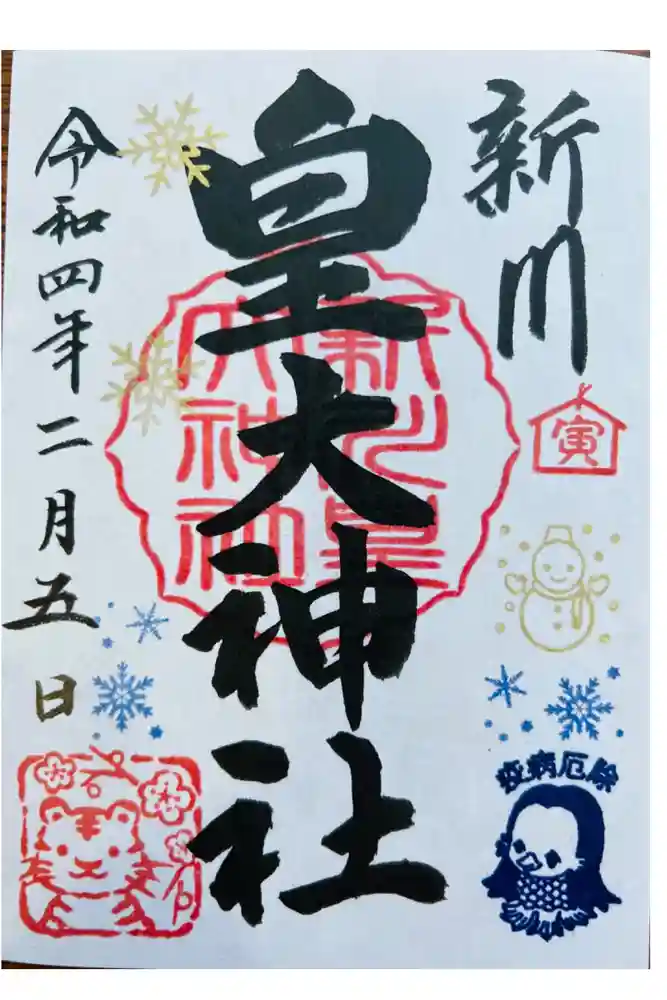 新川
皇大神社
令和四年二月五日
新川皇
大神社
寅
疫病厄除